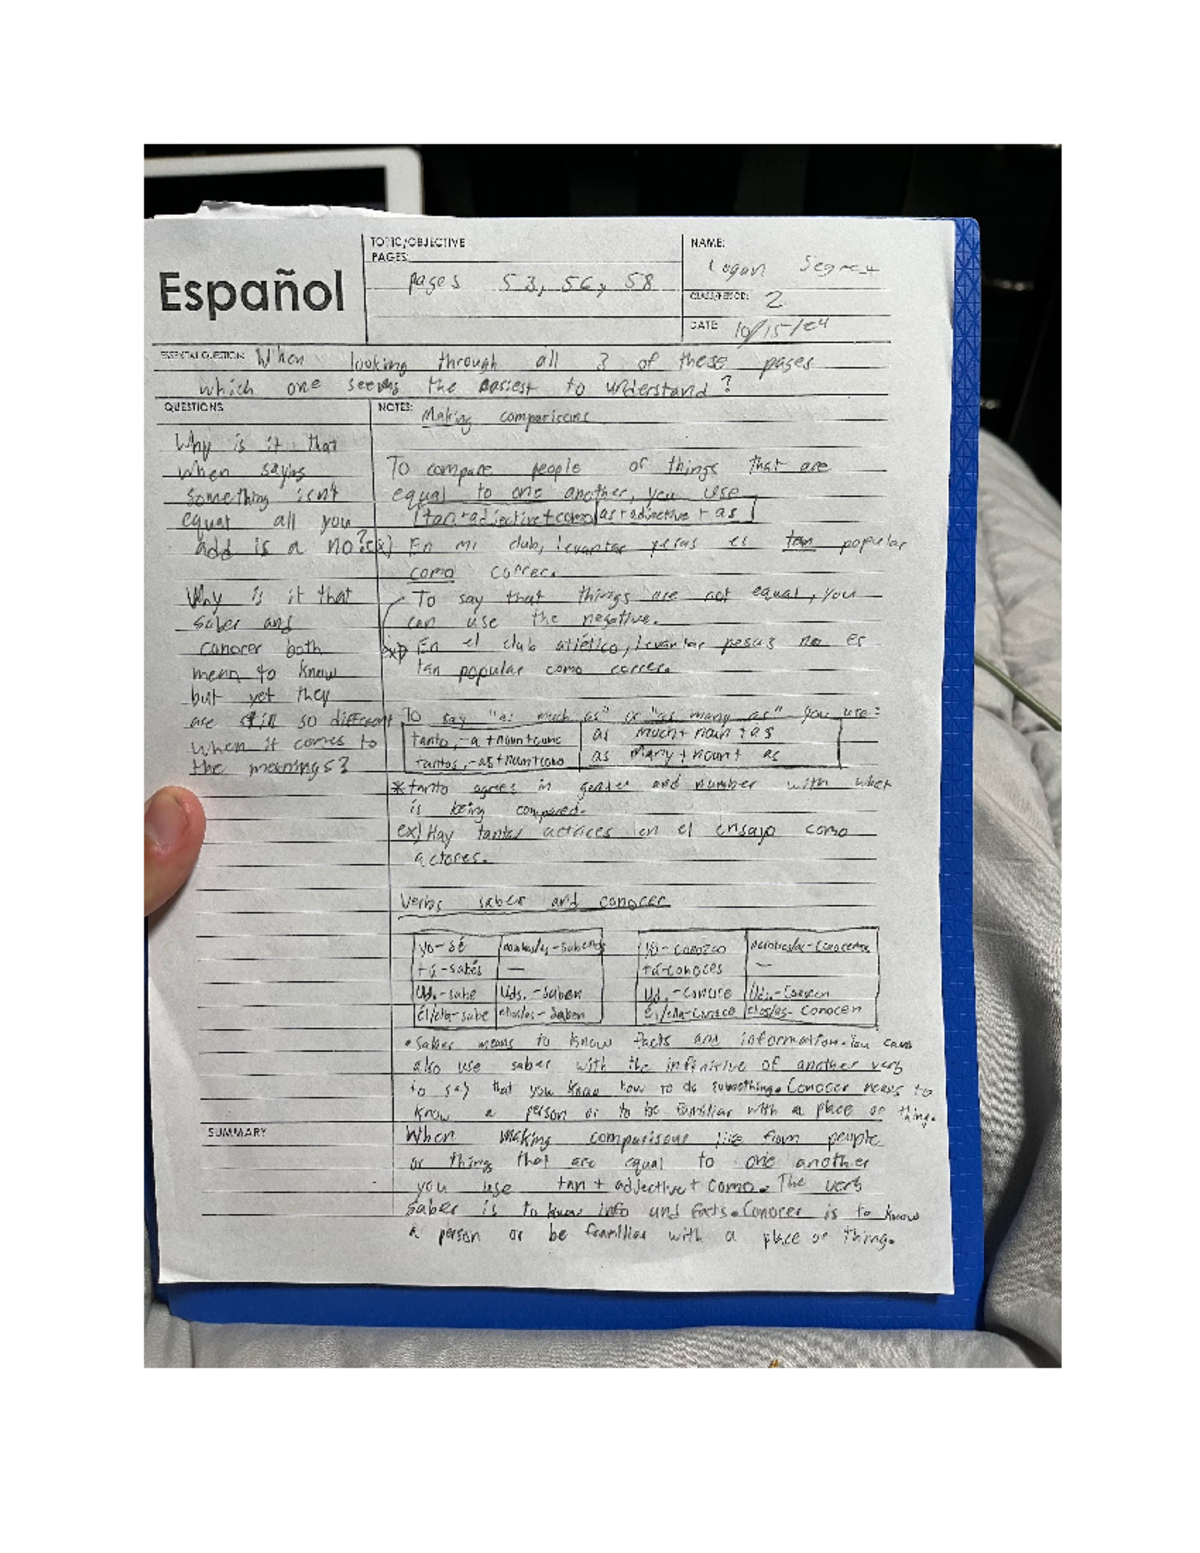 Español
TOPIC/OBJECTIVE
PAGES:
pages 53, 56, 58
NAME:
Logan
CLASS/PERIOD: 2
DATE: 10/15/24
ESSENTIAL QUESTION: When looking through all 3 of these pages
which one seems the easiest to understand?
QUESTIONS
Why is it that
when saying
something isn't
equal all you
add is a no?
Why is it that
saber and
conocer both
mean to know
but yet they
are still so different
when it comes to
the meanings?
NOTES: Making comparisons
To compare people or things that are
equal to one another, you use
tan+adjective+como as+adjective+as
ex) En mi club, levantar pesas es tan popular
como correr.
To say that things are not equal, you
can use the negative.
ex) En el club atlético, levantar pesas no es
tan popular como correr.
To say "as much as" or "as many as" you use:
tanto,-a+noun+como as much+noun+as
tantos,-as+noun+como as many+noun+as
*tanto agrees in gender and number with what
is being compared.
ex) Hay tantas actrices en el ensayo como
actores.
Verbs saber and conocer
yo-sé nosotros/as-sabemos
tú-sabes —
Ud.-sabe Uds.-saben
él/ella-sabe ellos/as-saben
yo-conozco nosotros/as-conocemos
tú-conoces —
Ud.-conoce Uds.-conocen
él/ella-conoce ellos/as-conocen
•saber means to know facts and information. You can
also use saber with the infinitive of another verb
to say that you know how to do something. Conocer means to
know a person or to be familiar with a place or thing.
SUMMARY
When making comparisons like from people
or things that are equal to one another
you use tan + adjective + como. The verb
saber is to know info and facts. Conocer is to know
a person or be familiar with a place or thing.